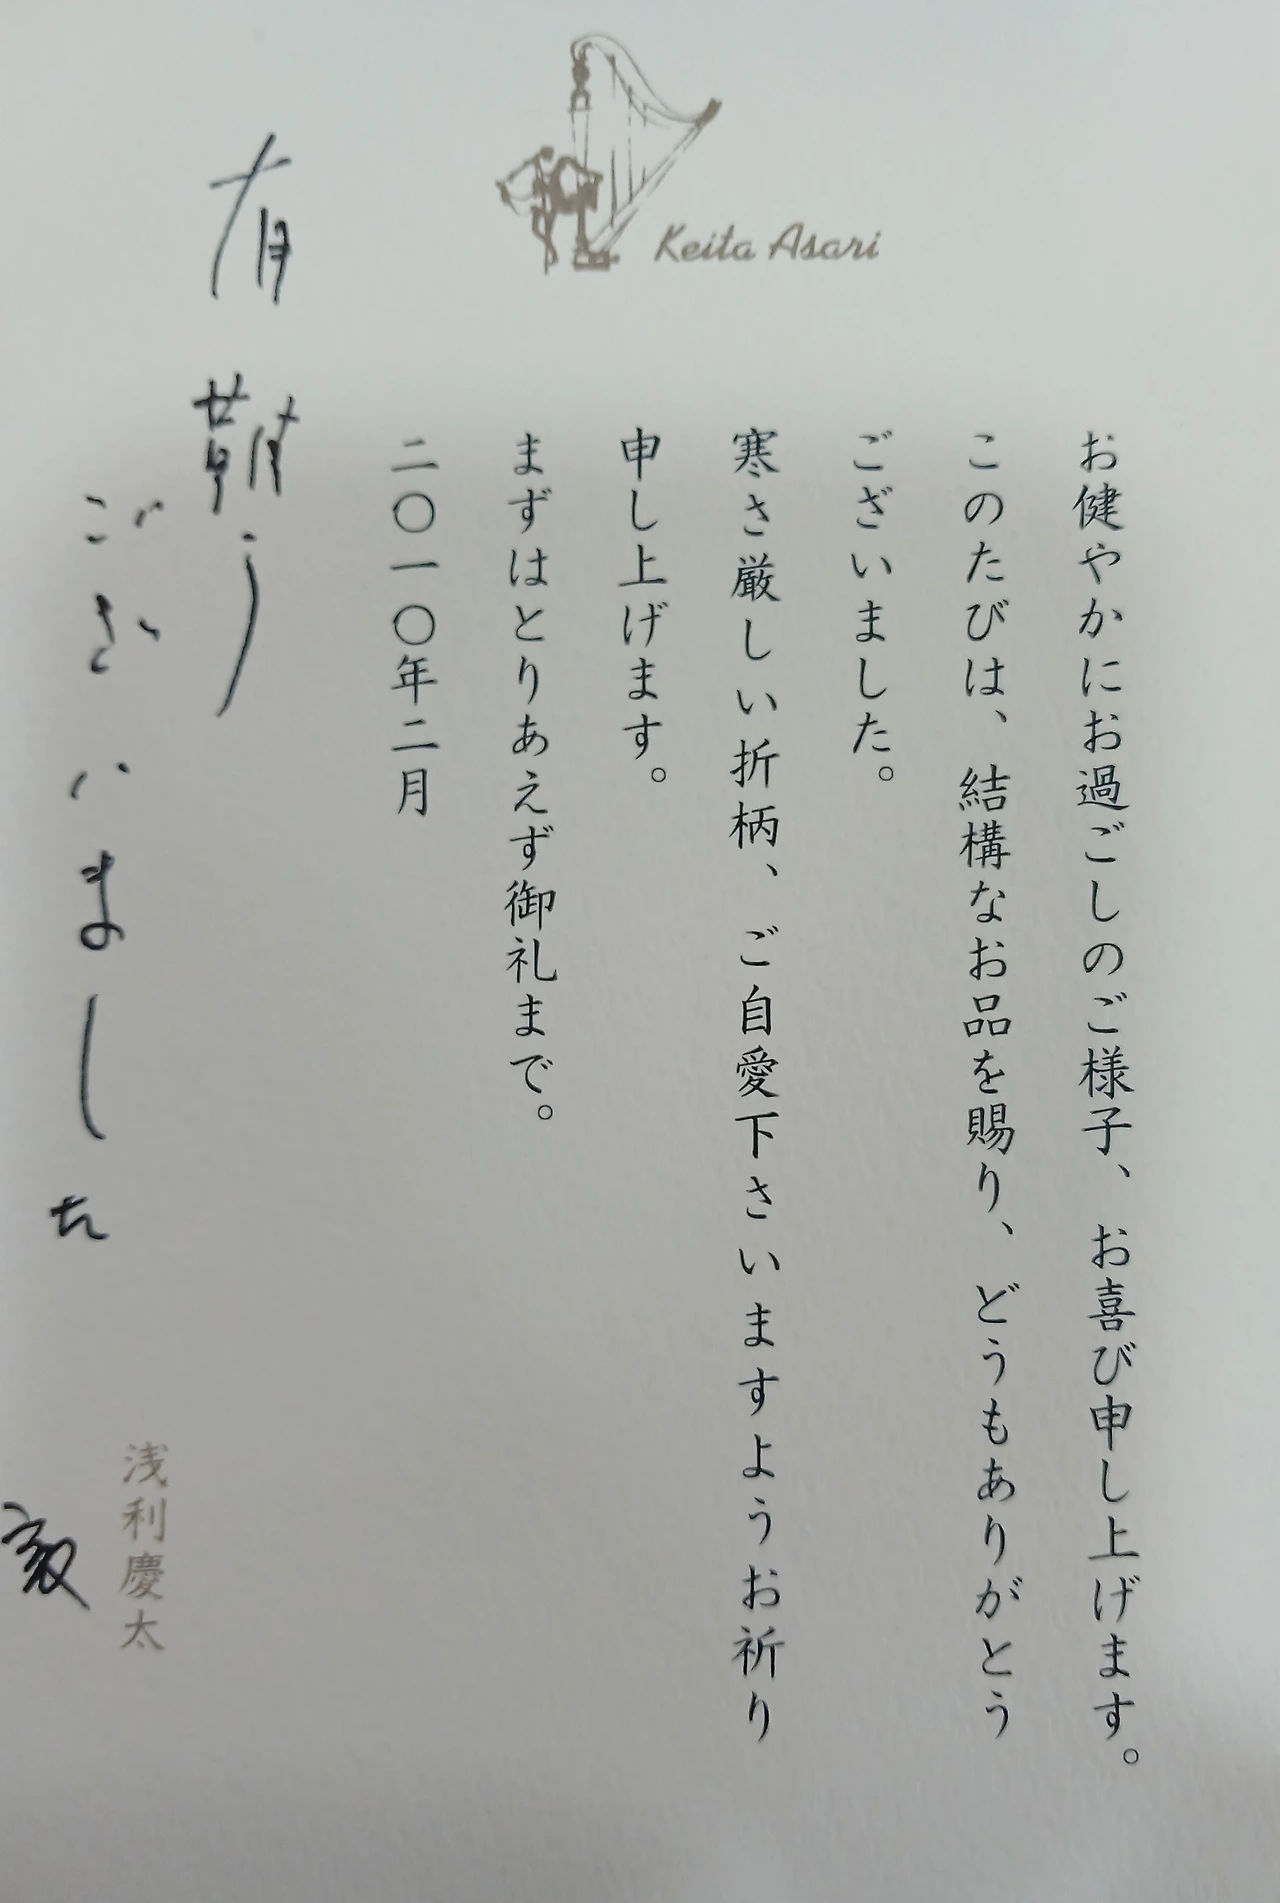 Keita Asari
お健やかにお過ごしのご様子、お喜び申し上げます。
このたびは、結構なお品を賜り、どうもありがとう
ございました。
寒さ厳しい折柄、ご自愛下さいますようお祈り
申し上げます。
まずはとりあえず御礼まで。
二〇一〇年二月
有難う
ございました
浅利慶太